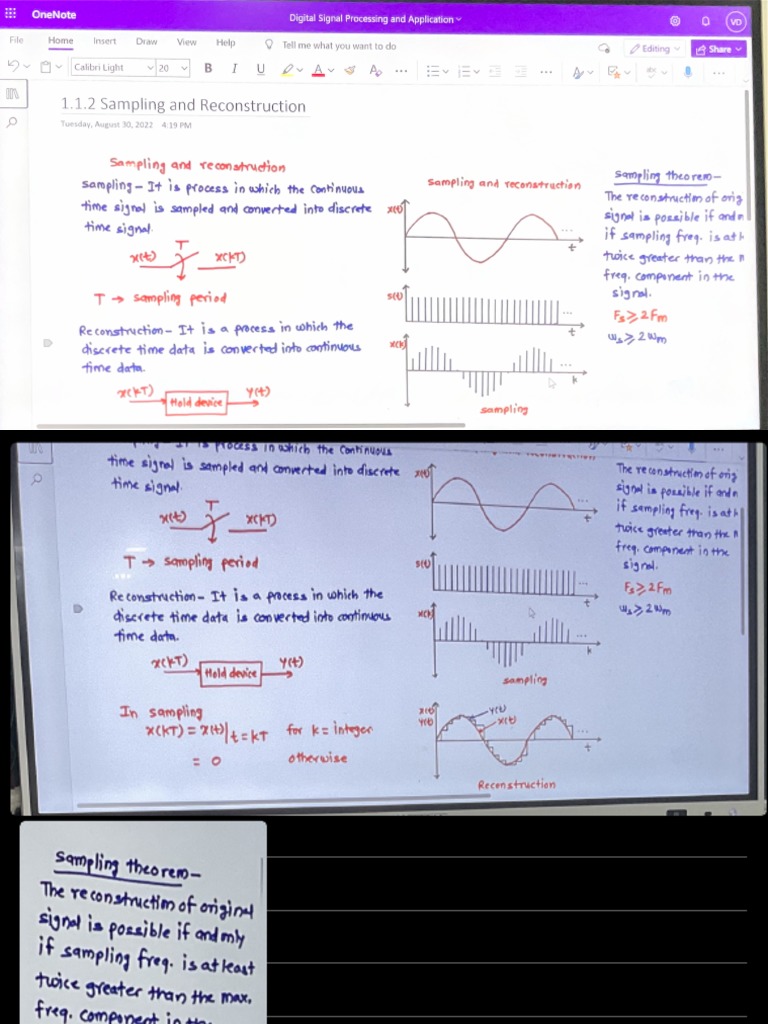 OneNote
Digital Signal Processing and Application
VD
File Home Insert Draw View Help Tell me what you want to do
Editing Share
Calibri Light 20 B I U A
1.1.2 Sampling and Reconstruction
Tuesday, August 30, 2022 4:19 PM
Sampling and reconstruction
Sampling - It is process in which the continuous
time signal is sampled and converted into discrete
time signal.
T
x(t) x(kT)
T → sampling period
Reconstruction - It is a process in which the
discrete time data is converted into continuous
time data.
x(kT) Hold device y(t)
Sampling and reconstruction
x(t)
...
t
s(t)
...
t
x(k)
...
k
sampling
Sampling theorem -
The reconstruction of orig
signal is possible if and
if sampling freq. is at
twice greater than the
freq. component in the
signal.
Fs ≥ 2Fm
ωs ≥ 2ωm
It is process in which the continuous
time signal is sampled and converted into discrete
time signal.
T
x(t) x(kT)
T → sampling period
Reconstruction - It is a process in which the
discrete time data is converted into continuous
time data.
x(kT) Hold device y(t)
In sampling
x(kT) = x(t)|t = kT for k = integer
= 0 otherwise
x(t)
...
t
s(t)
...
t
x(k)
...
k
sampling
x(t)
y(t)
y(t)
x(t)
...
t
Reconstruction
The reconstruction of orig
signal is possible if and
if sampling freq. is at
twice greater than the
freq. component in the
signal.
Fs ≥ 2Fm
ωs ≥ 2ωm
Sampling theorem -
The reconstruction of original
signal is possible if and only
if sampling freq. is at least
twice greater than the max.
freq. component in the